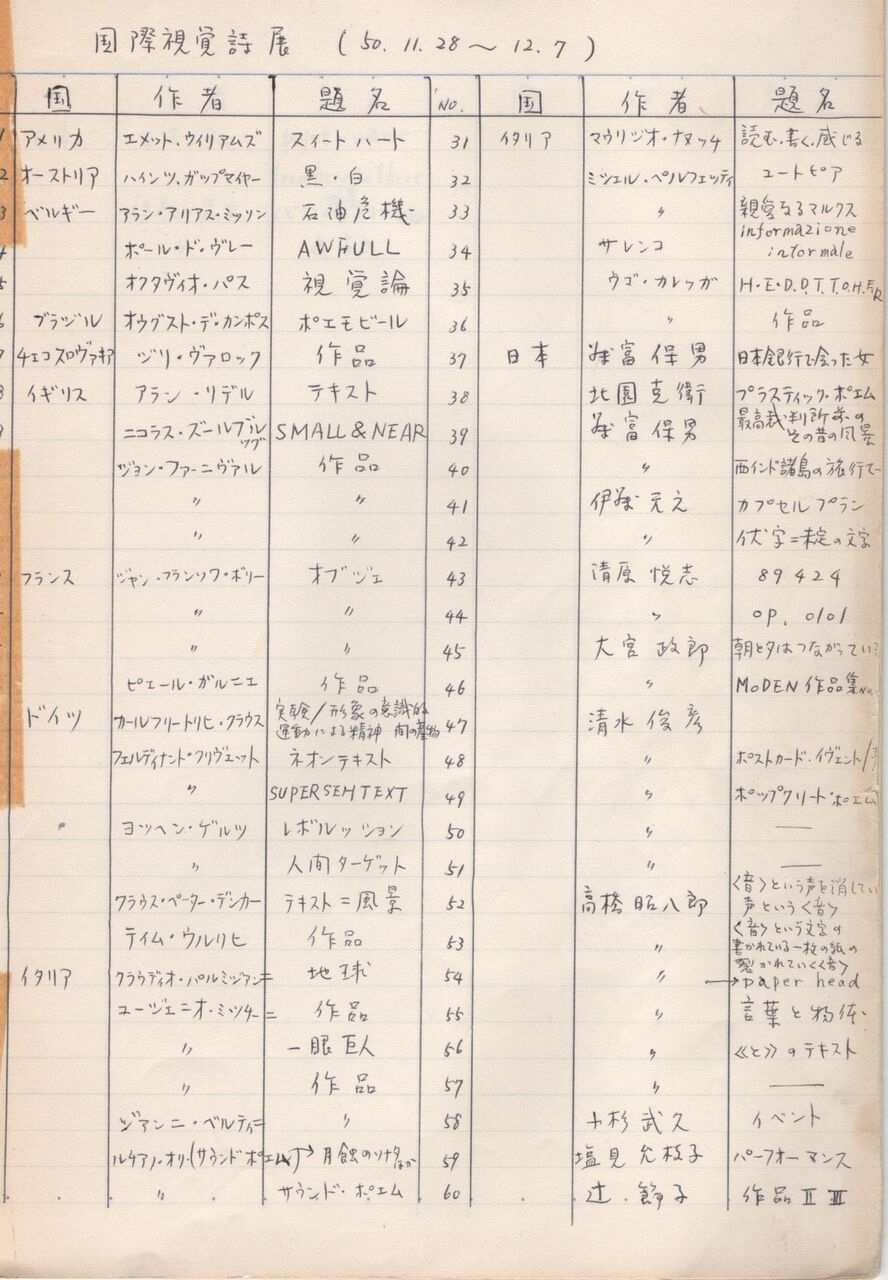 国際視覚詩展 (50.11.28〜12.7)
国 作者 題名 NO. 国 作者 題名
アメリカ エメット・ウィリアムズ スィートハート 31 イタリア マウリジオ・ナヌッチ 読む・書く・感じる
2 オーストリア ハインツ・ガップマイヤー 黒・白 32 ミシェル・ペルフェッティ ユートピア
3 ベルギー アラン・アリアス・ミッソン 石油危機 33 〃 親愛なるマルクス
ポール・ド・ヴレー AWFULL 34 サレンコ informazione
intormale
5 オクタヴィオ・パス 視覚論 35 ウゴ・カレッガ H・E・D.D.T.T.O.H.E.R
ブラジル オウグスト・デ・カンポス ポエモビール 36 〃 作品
チェコスロヴァキア ジリ・ヴァロック 作品 37 日本 富保男 日本銀行で会った女
イギリス アラン・リデル テキスト 38 北園克衛 プラスティック・ポエム
ニコラス・ズールブルッグ SMALL & NEAR 39 富保男 最高裁判所前の
その昔の風景
ジョン・ファーニヴァル 作品 40 〃 西インド諸島の旅行で
〃 〃 41 伊 元之 カプセルプラン
〃 〃 42 〃 伏字=未定の文字
フランス ジャン・フランソワ・ボリー オブジェ 43 清原悦志 89424
〃 〃 44 〃 op. 0101
〃 〃 45 大宮政郎 朝と夕はつながってい
ピエール・ガルニエ 作品 46 〃 MODEN 作品集 No.
ドイツ カールフリートリヒ・クラウス 実験/形象の意識的
運動による精神 間の産物 47 清水俊彦
フェルディナント・クリヴェット ネオンテキスト 48 〃 ポストカード・イヴェント/
〃 SUPERSEHTEXT 49 〃 ポップクリート・ポエム
ヨッヘン・ゲルツ レボルッション 50 〃 ―
〃 人間ターゲット 51 〃 ―
クラウス・ペーター・デンカー テキスト=風景 52 高橋昭八郎 〈音〉という声を消してい
声という〈音〉
ティム・ウルリヒ 作品 53 〃 〈音〉という文字の
書かれている一枚の紙の
裂かれていく〈音〉
イタリア クラウディオ・パルミジアニ 地球 54 〃 → paper head
ユージェニオ・ミッチーニ 作品 55 〃 言葉と物体
〃 一眼巨人 56 〃 《と》のテキスト
〃 作品 57 〃 ―
ジアンニ・ベルティニ 〃 58 小杉武久 イベント
ルチアノ・オリ(サウンドポエム) → 月蝕のソナタほか 59 塩見允枝子 パーフォーマンス
〃 サウンド・ポエム 60 辻・節子 作品 II III